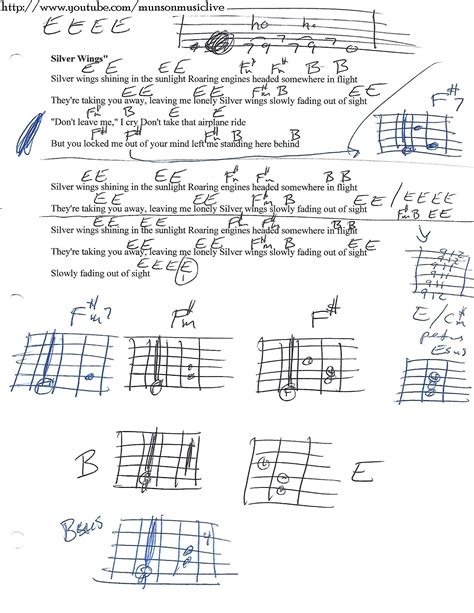 http://www.youtube.com/munsonmusiclive
E E E E
ho ho
7 9 7 9
Silver Wings"
E E E E F#m F#m B B
Silver wings shining in the sunlight Roaring engines headed somewhere in flight
E E E E F#m B E E
They're taking you away, leaving me lonely Silver wings slowly fading out of sight
F#m B E E
"Don't leave me," I cry Don't take that airplane ride
F#m F#m B B
But you locked me out of your mind left me standing here behind
F#7
E E E E F#m F#m B B
Silver wings shining in the sunlight Roaring engines headed somewhere in flight
E E E E F#m B E E / E E E E
They're taking you away, leaving me lonely Silver wings slowly fading out of sight
F#m B E E
E E E E F#m F#m B B
Silver wings shining in the sunlight Roaring engines headed somewhere in flight
E E E E F#m B E E
They're taking you away, leaving me lonely Silver wings slowly fading out of sight
E E E E
Slowly fading out of sight
F#m7
F#m
F#
E/C#m
Esus
B
E
Bsus
4